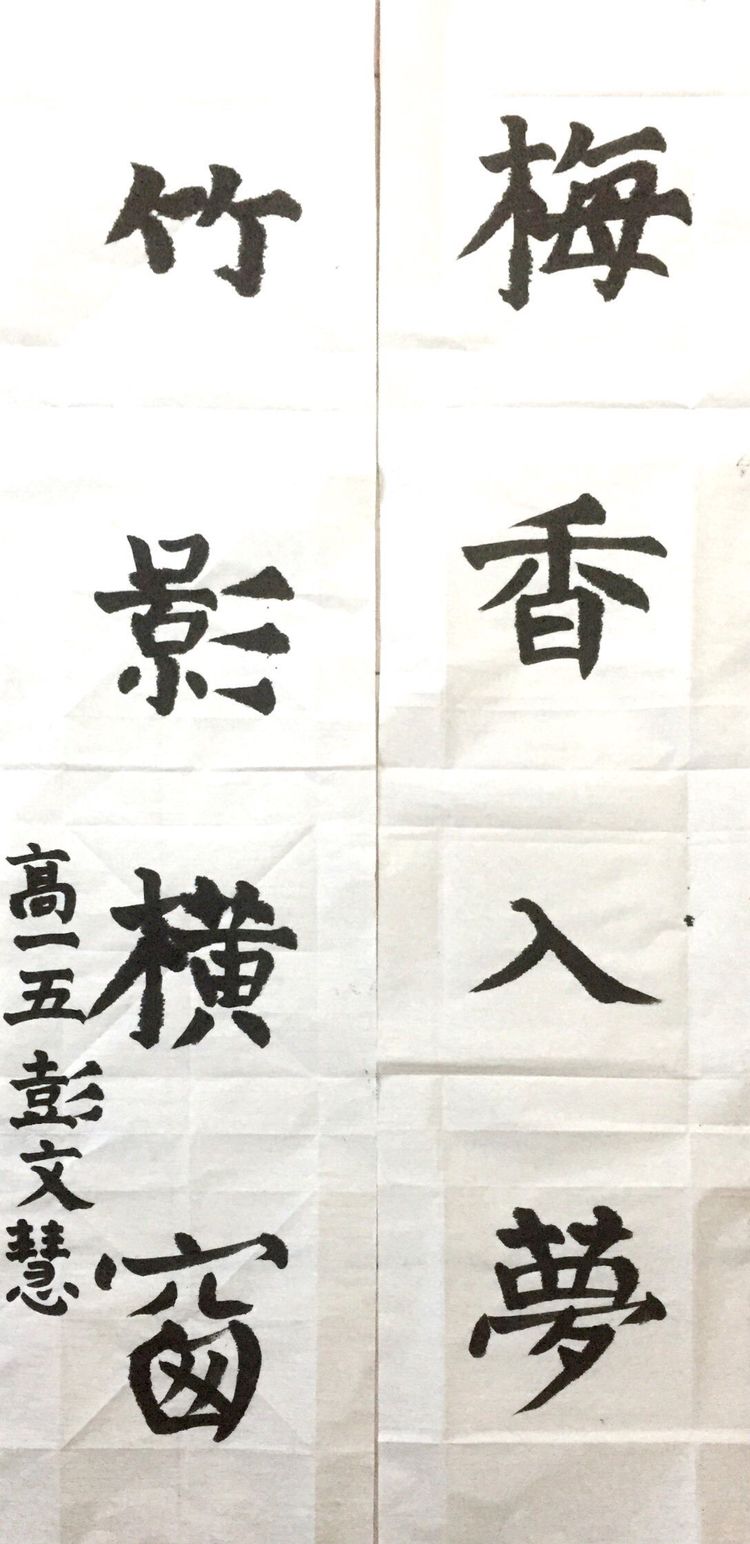 梅香入夢
竹影橫窗
高一五 彭文慧